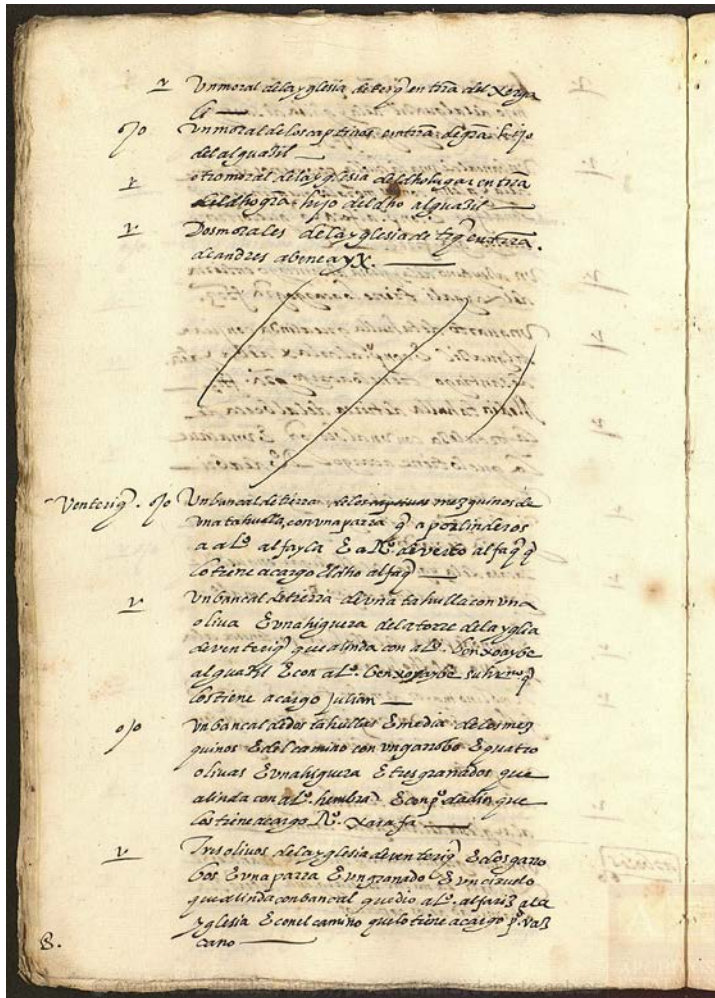 v Un moral de la yglesia de terq̃ en tr̃ra del xorga
li
ojo un moral de los captiuos en tr̃ra de gr̃a hijo
del alguazil
v otro moral de la yglesia del dho lugar en tr̃ra
del dho gr̃a hijo del dho alguazil
v Dos moral es de la yglesia de terq̃ en tr̃ra
de andres abeneayx.
Venteriq̃. ojo Un bancal de tierra de los mezquinos de
vna tahulla, con vna parra q̃ a por linderos
a al.º alfayla E a R.º de alfaq̃ q̃
lo tiene a cargo El dho alfaq̃
v un bancal de tierra de vna tahulla con vna
oliua E vna higuera de la torre de la yglia
de venteriq̃ que alinda con al.º benxoaybe
alguazil E con al.º benxoaybe su hr.no q̃
los tiene a cargo Julian
ojo un bancal de dos tahullas E media de los mez
quinos E del camino con vn garrobo E quatro
oliuas E vna higuera E tres granados que
alinda con al.º hembra E con p.º dadin que
los tiene a cargo R.º xarafa
v Tres oliuos de la yglesia de venteriq̃ E dos garro
bos E vna parra E vn granado E vn ciruelo
que alinda con bancal que dio al.º alfariz a la
yglesia E con el camino que lo tiene a cargo p.º vaz
cano
8.